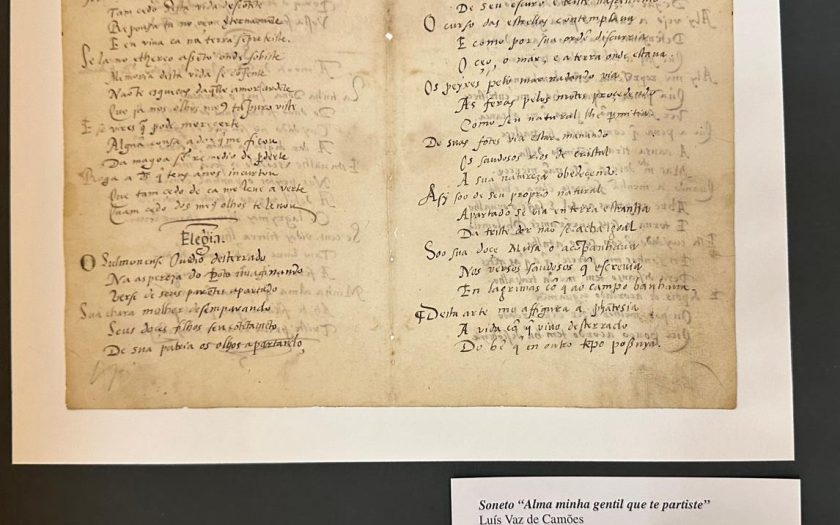 Tam cedo desta vida desconte
Repousa tu no ceo eternamente
E eu viva ca na terra sempre triste.
Se la no ethereo assento onde sobiste
Memoria desta vida se consente
Não te esqueças daqlle amor ardête
Que ja nos olhos meus tã pura viste
E se vires q̃ pode merecerte
Algũa cousa a dor que me ficou
Da magoa sẽ remedio de perderte
Roga a Ds q̃ teus anos incurtou
Que tam cedo de ca me leve a verte
Quam cedo dos meus olhos te levou
Elegia.
O Sulmonense Ouvidio desterrado
Na aspereza do Põto imaginando
Verse de seus parẽtes apartado
Sua chara molher desemparando
Seus doces filhos seu contentamẽto
De sua patria os olhos apartando,
De seu escuro e triste nascimento
O curso das estrellas contemplava
E como por sua ordẽ discurria
O ceo, o mar, e a terra onde estava.
Os peyxes pelo mar nadando via
As feras pelos montes procedendo
Como seu natural lhe permitia.
De suas fõtes via estar manando
Os saudosos rios de cristal
A sua natureza obedecendo.
Asy soo de seu proprio natural
Apartado se via em terra estranha
Da triste dor nõ se acha igual
Soo sua doce Musa o acõpanhava
Nos versos saudosos q̃ escrevia
En lagrimas cõ q̃ ao campo banhava.
Desta arte me affigura a phãtesia
A vida cõ q̃ vivo desterrado
Do bẽ q̃ en outro tẽpo possuya.
Soneto “Alma minha gentil que te partiste”
Luís Vaz de Camões